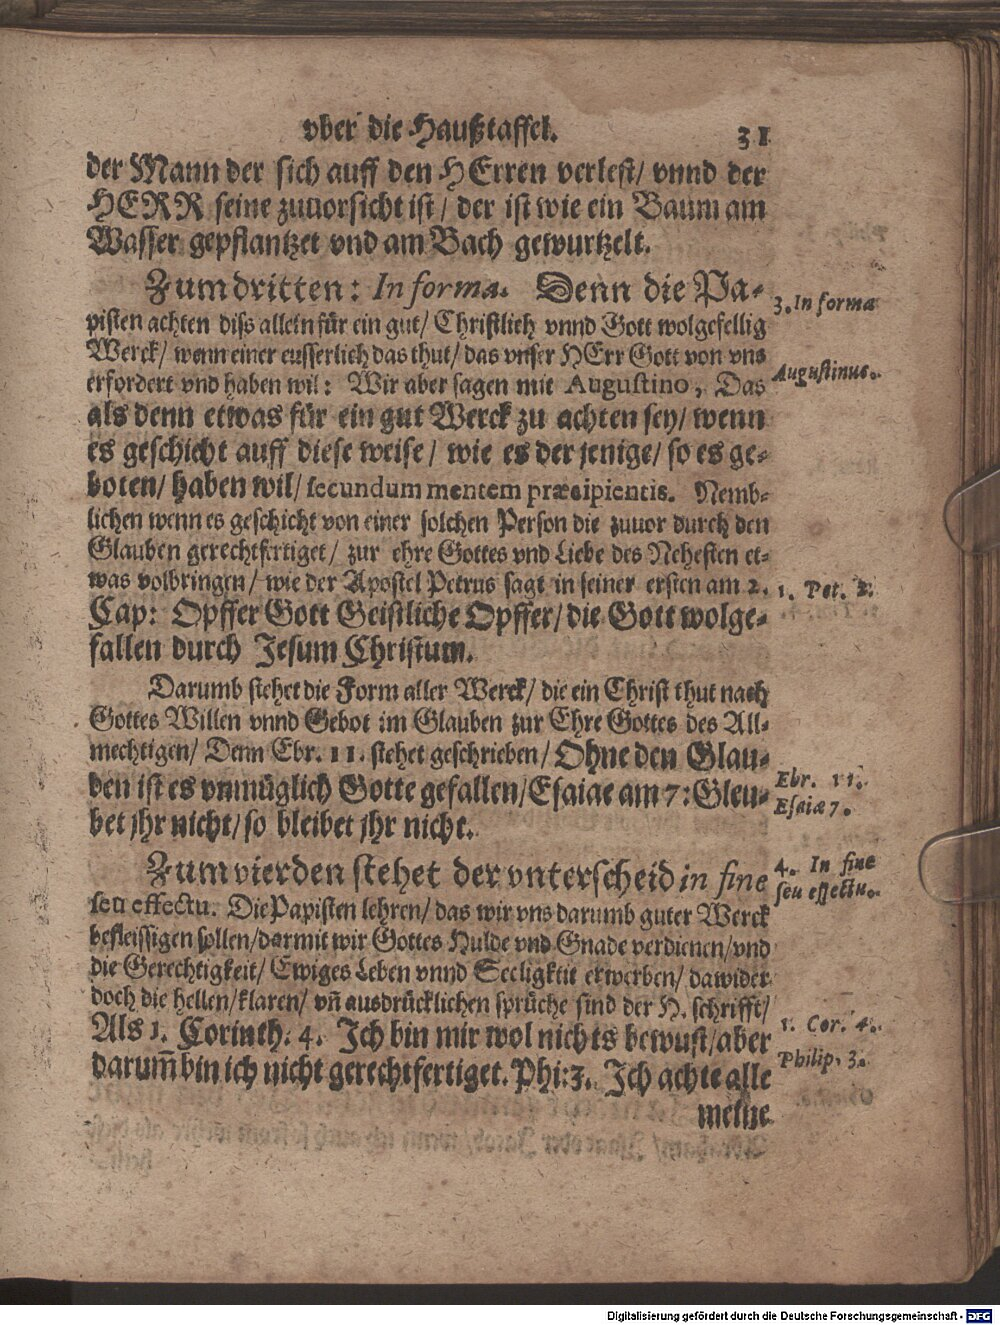 vber die Haußtaffel. 31
der Mann der sich auff den HErren verlest/ vnnd der
HERR seine zuuorsicht ist/ der ist wie ein Baum am
Wasser gepflantzet vnd am Bach gewurtzelt.
Zum dritten: In forma. Denn die Pa-
pisten achten diss allein für ein gut/ Christlich vnnd Gott wolgefellig
Werck/ wenn einer eusserlich das thut/ das vnser HErr Gott von vns
erfordert vnd haben wil: Wir aber sagen mit Augustino, Das
als denn etwas für ein gut Werck zu achten sey/ wenn
es geschicht auff diese weise/ wie es der jenige/ so es ge-
boten/ haben wil/ secundum mentem præcipientis. Nemb-
lichen wenn es geschicht von einer solchen Person die zuuor durch den
Glauben gerechtfertiget/ zur ehre Gottes vnd Liebe des Nehesten et-
was volbringen/ wie der Apostel Petrus sagt in seiner ersten am 2.
Cap: Opffer Gott Geistliche Opffer/ die Gott wolge-
fallen durch Jesum Christum.
Darumb stehet die Form aller Werck/ die ein Christ thut nach
Gottes Willen vnnd Gebot im Glauben zur Ehre Gottes des All-
mechtigen/ Denn Ebr. 11. stehet geschrieben/ Ohne den Glau-
ben ist es vnmüglich Gotte gefallen/ Esaiae am 7: Gleu-
bet jhr nicht/ so bleibet jhr nicht.
Zum vierden stehet der vnterscheid in fine
seu effectu. Die Papisten lehren/ das wir vns darumb guter Werck
befleissigen sollen/ darmit wir Gottes Hulde vnd Gnade verdienen/ vnd
die Gerechtigkeit/ Ewiges Leben vnnd Seeligkeit erwerben/ dawider
doch die hellen/ klaren/ vñ ausdrücklichen sprüche sind der H. schrifft/
Als 1. Corinth. 4. Ich bin mir wol nichts bewust/ aber
darum̃ bin ich nicht gerechtfertiget. Phi: 3. Ich achte alle
meine
3. In forma
Augustinus.
1. Pet. 2.
Ebr. 11.
Esaiæ 7.
4. In fine
seu effectu.
1. Cor. 4.
Philip. 3.
Digitalisierung gefördert durch die Deutsche Forschungsgemeinschaft - DFG